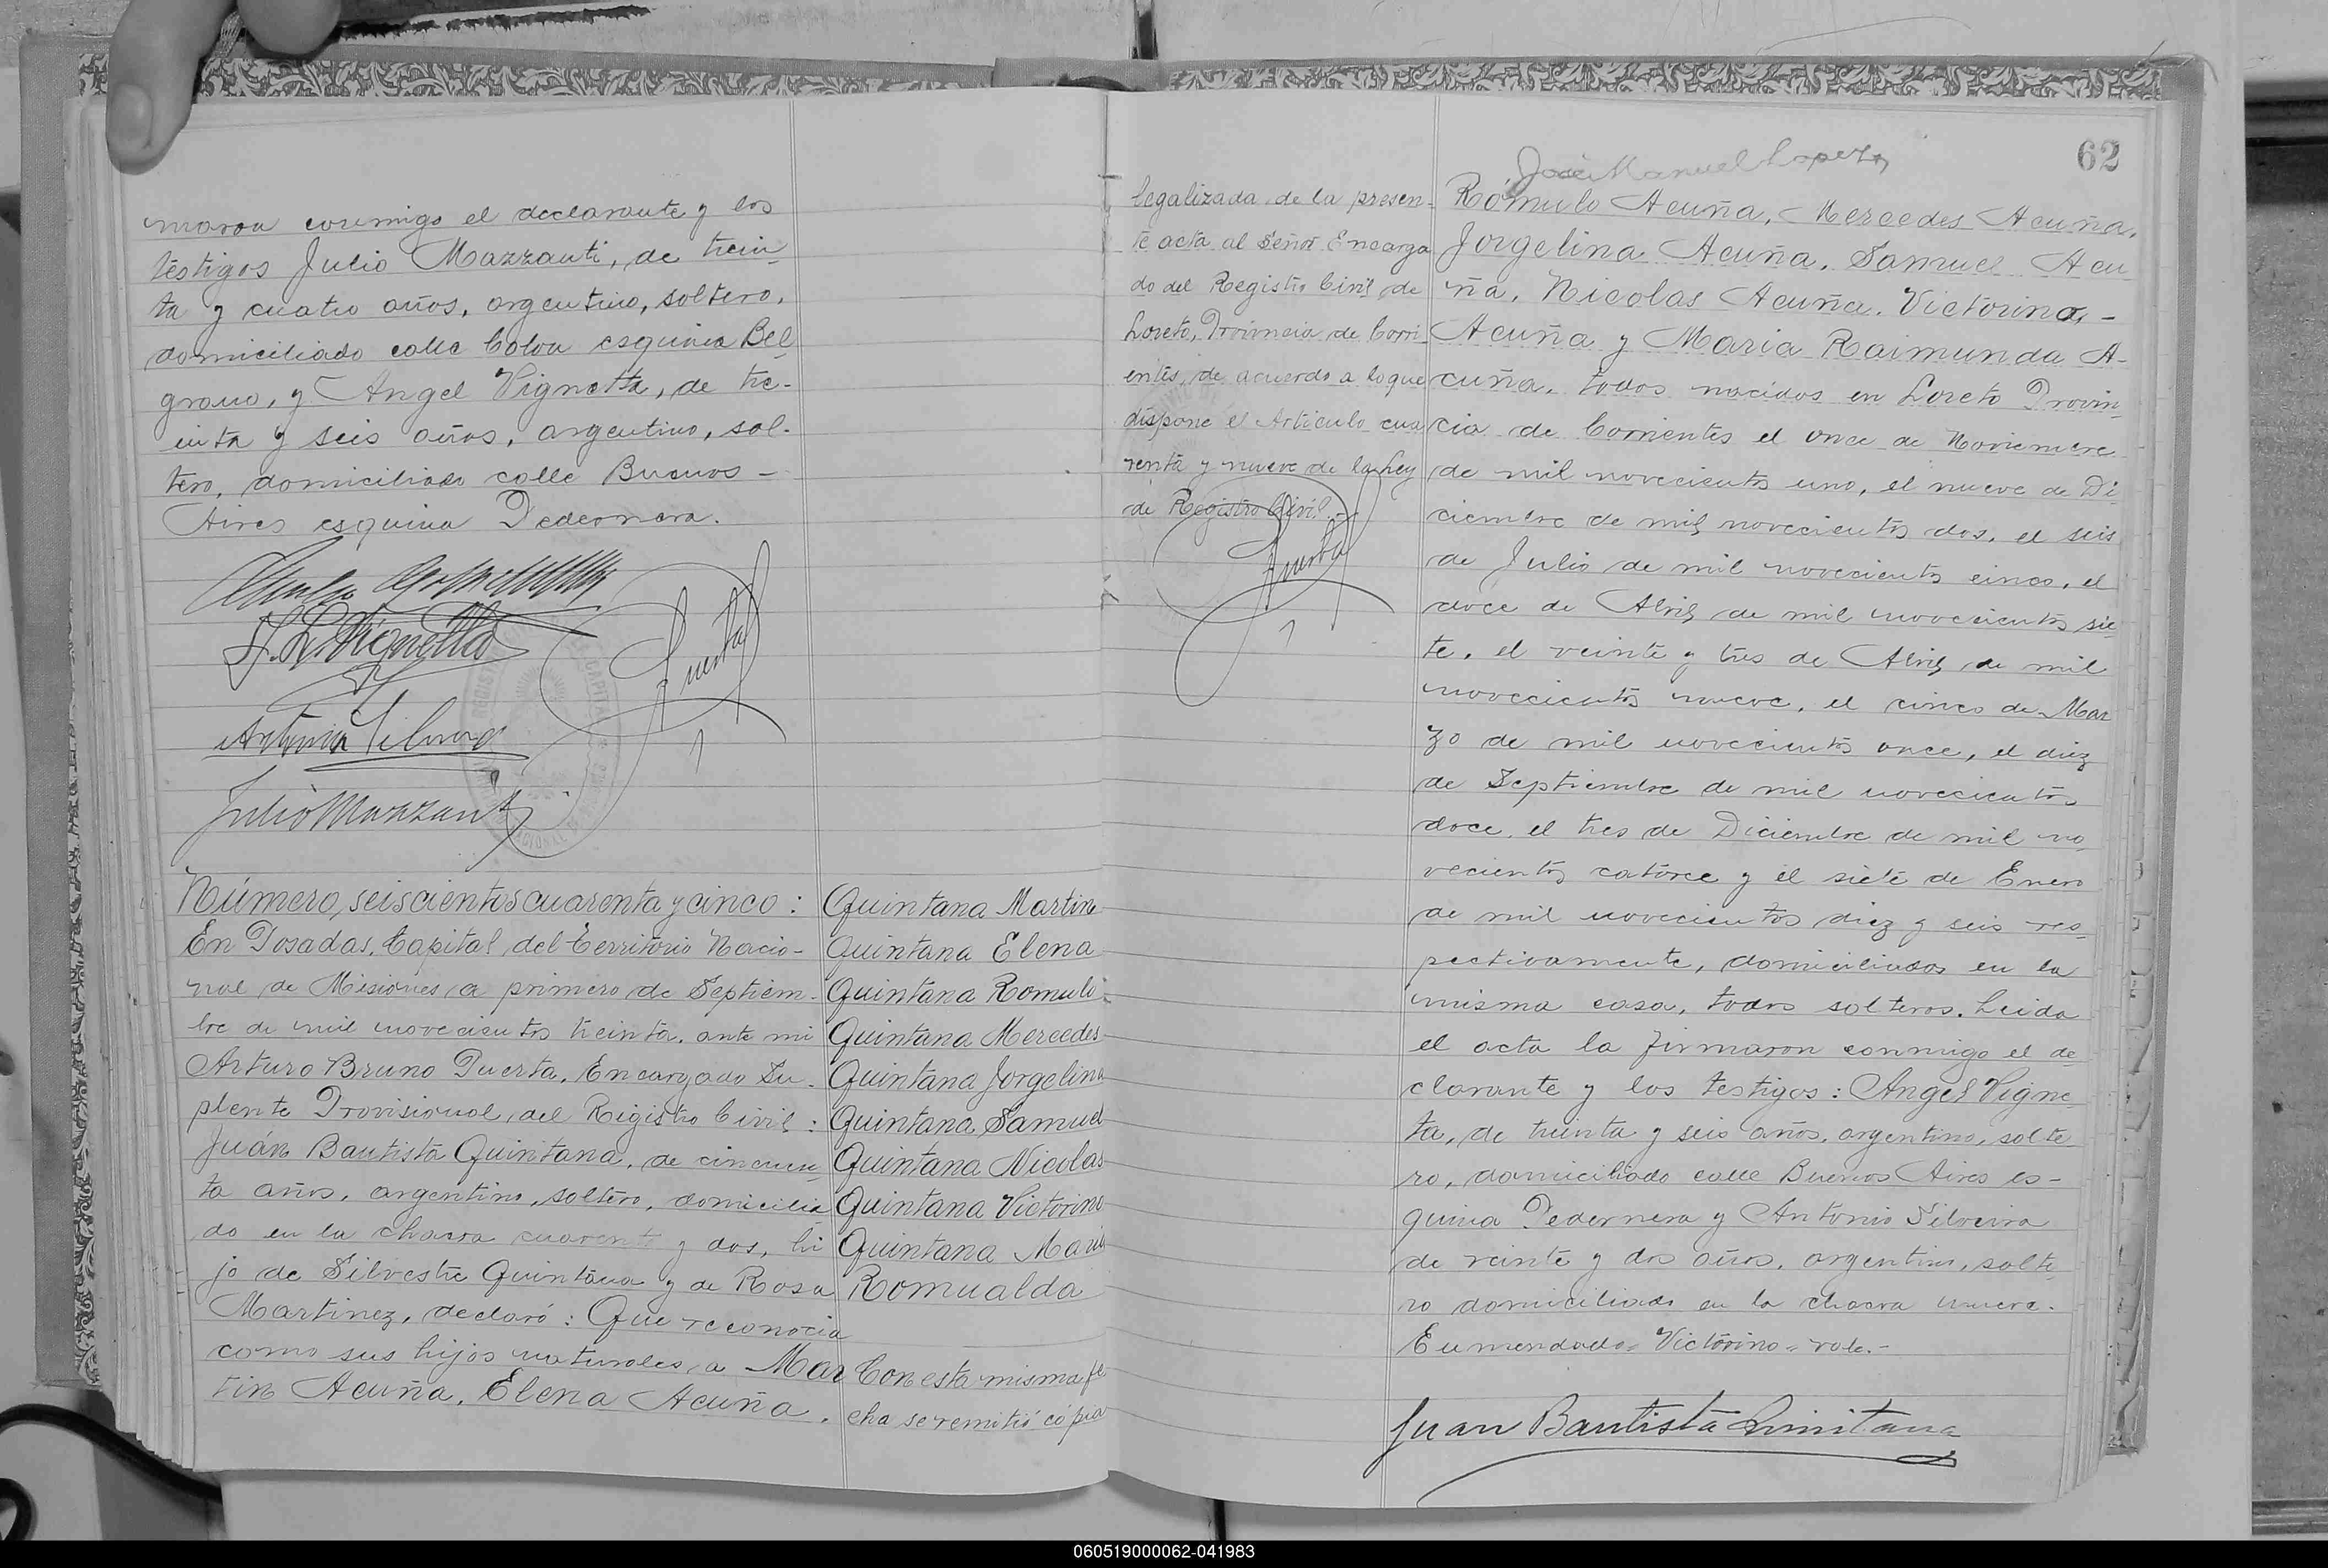 maron conmigo el declarante y los
testigos Julio Mazzanti, de trein
ta y cuatro años, argentino, soltero,
domiciliado calle Colon esquina Bel
grano, y Angel Vignetta, de tre-
inta y seis años, argentino, sol-
tero, domiciliado calle Buenos -
Aires esquina Pedernera.
Puerta
Julio Mazzanti
Número, seiscientos cuarenta y cinco :
En Posadas, Capital del Territorio Nacio-
nal de Misiones, a primero de Septiem-
bre de mil novecientos treinta, ante mi
Arturo Bruno Puerta, Encargado Su-
plente Provisional del Registro Civil :
Juán Bautista Quintana, de cincuen
ta años, argentino, soltero, domicilia
do en la chacra cuarenta y dos, hi
jo de Silvestre Quintana y de Rosa
Martinez, declaró : Que reconocia
como sus hijos naturales, a Mar
tin Acuña, Elena Acuña,
Quintana Martin
Quintana Elena
Quintana Romulo
Quintana Mercedes
Quintana Jorgelina
Quintana Samuel
Quintana Nicolas
Quintana Victorino
Quintana Maria
Romualda
Con esta misma fe
cha se remitió cópia
legalizada de la presen-
te acta al Señor Encarga
do del Registro Civil de
Loreto, Provincia de Corri
entes, de acuerdo a lo que
dispone el Articulo cua
renta y nueve de la Ley
de Registro Civil.-
Puerta
62
José Manuel Lopez
Romulo Acuña, Mercedes Acuña,
Jorgelina Acuña, Samuel Acu
ña, Nicolas Acuña, Victorino, -
Acuña y Maria Raimunda A-
cuña, todos nacidos en Loreto Provin
cia de Corrientes el once de Noviembre
de mil novecientos uno, el nueve de Di
ciembre de mil novecientos dos, el seis
de Julio de mil novecientos cinco, el
doce de Abril de mil novecientos sie
te, el veinte y tres de Abril de mil
novecientos nueve, el cinco de Mar
zo de mil novecientos once, el diez
de Septiembre de mil novecientos
doce, el tres de Diciembre de mil no
vecientos catorce y el siete de Enero
de mil novecientos diez y seis res-
pectivamente, domiciliados en la
misma casa, todos solteros. Leida
el acta la firmaron conmigo el de
clarante y los testigos : Angel Vigne
ta, de treinta y seis años, argentino, solte
ro, domiciliado calle Buenos Aires es-
quina Pedernera y Antonio Silveira
de veinte y dos años, argentino, solte
ro domiciliado en la chacra nueve.
Enmendado = Victorino = vale.-
Juan Bautista Quintana
060519000062-041983